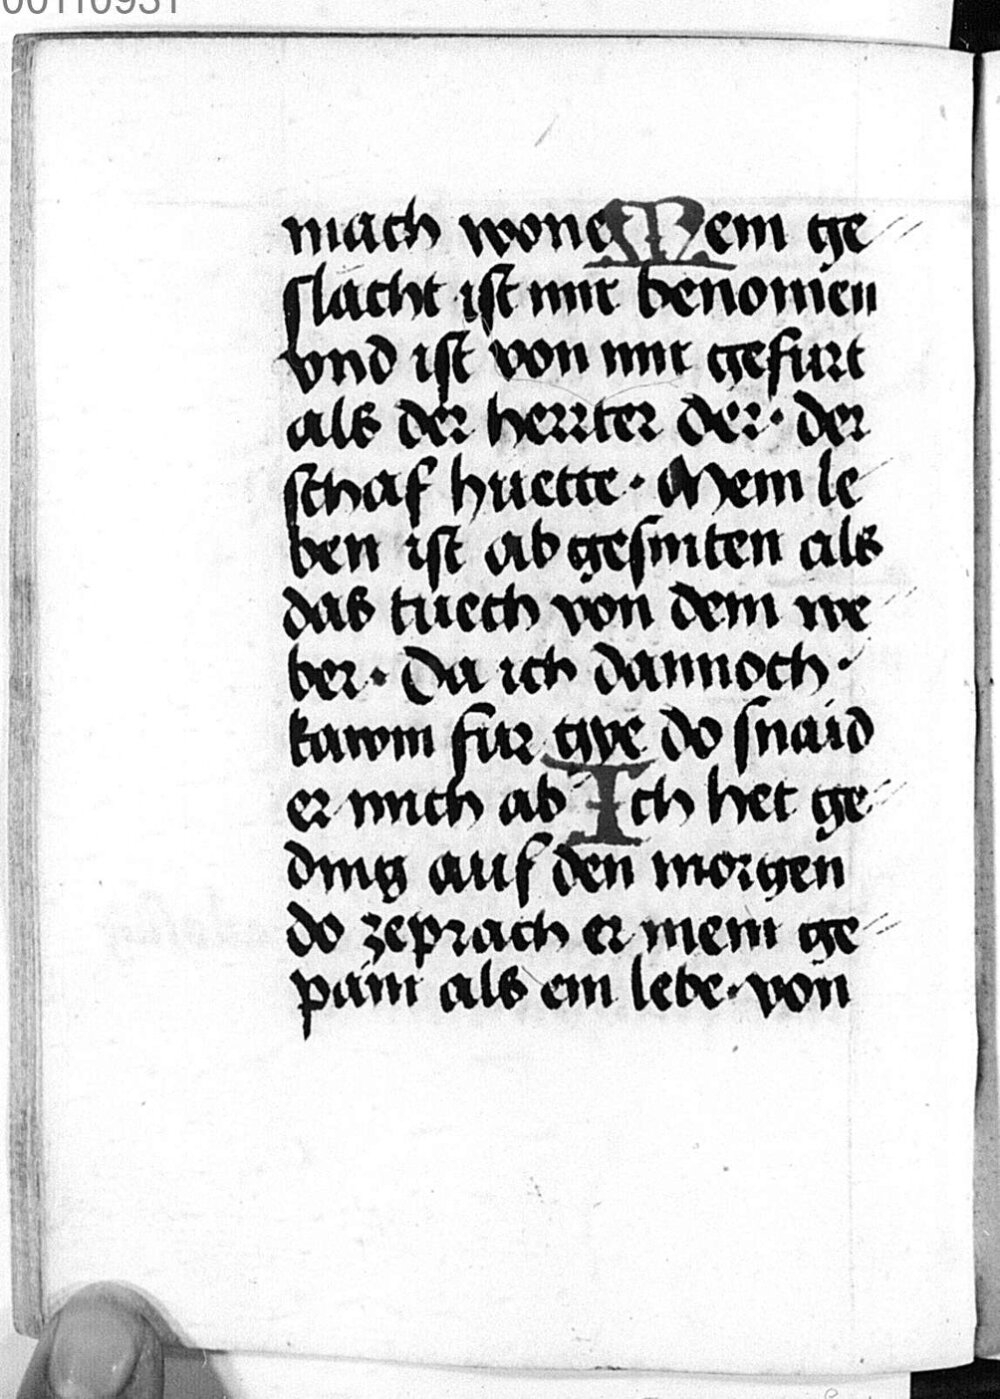 00110931
mach wone Mein ge
slacht ist mir benomen
vnd ist von mir gefurt
als der herrter der· der
schaf huette· Mein le
ben ist ab gesniten als
das tuech von dem we
ber· Da ich dannoch·
kawm fur twe do snaid
er mich ab Ich het ge
ding auf den morgen
do zeprach er mein ge
pain als ein lebe· von